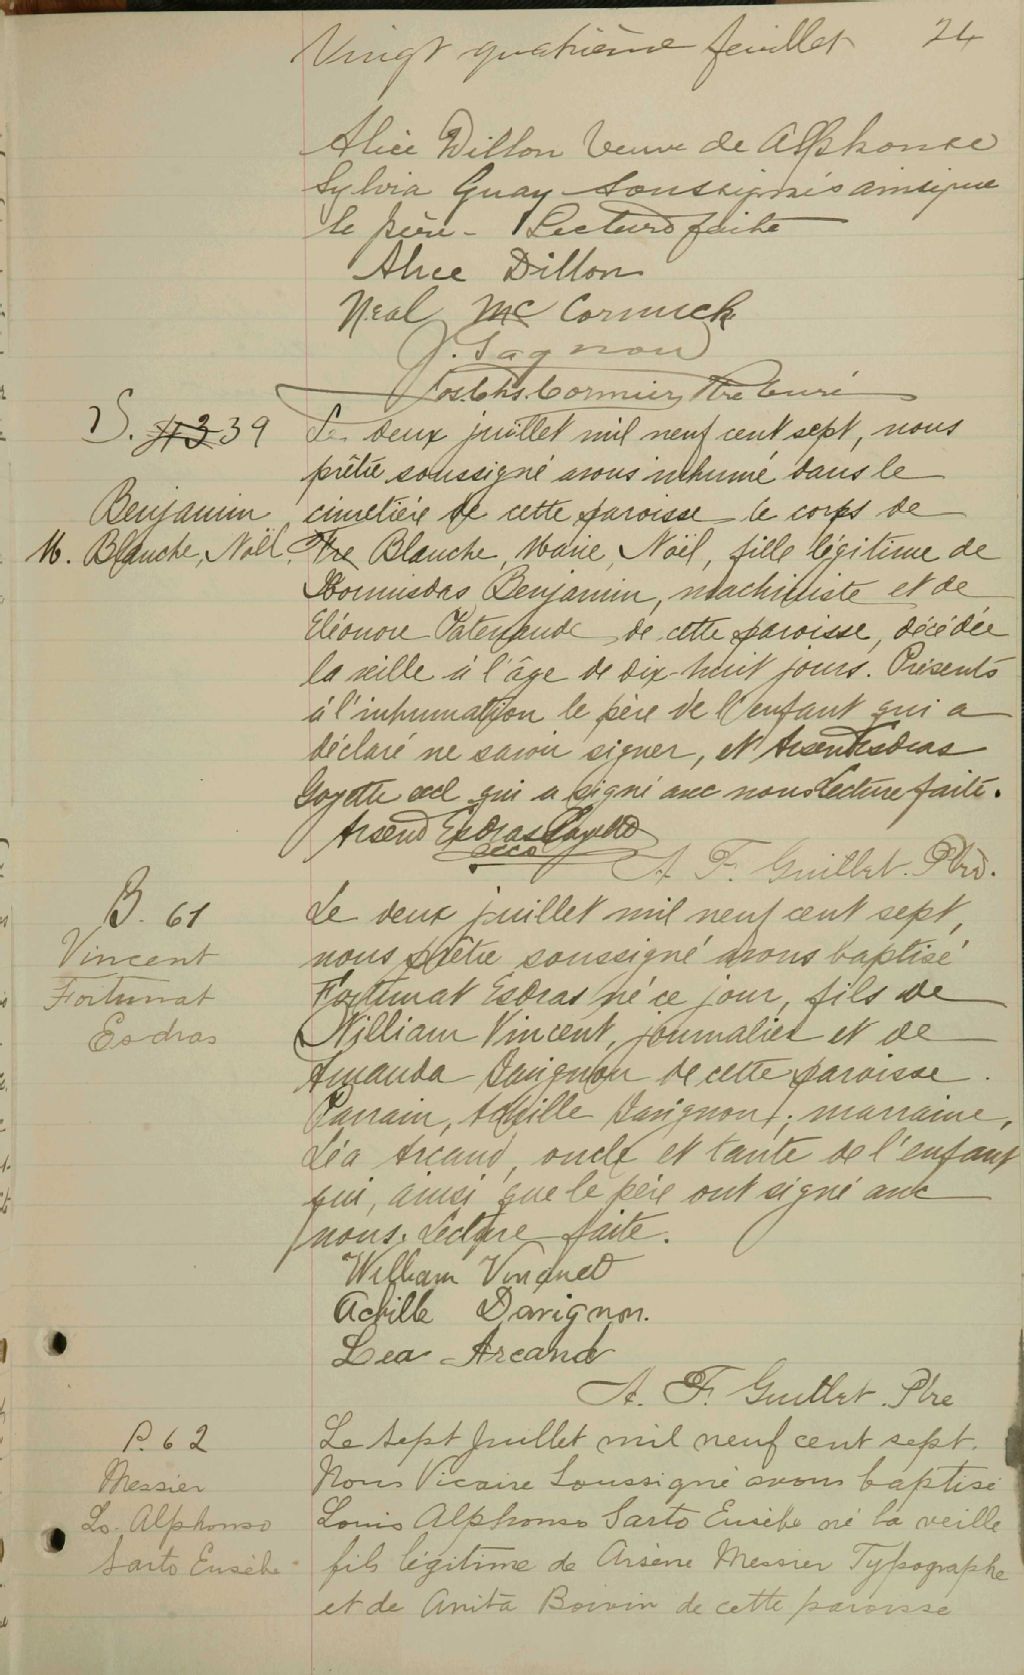 Vingt quatrième feuillet 24
Alice Dillon Veuve de Alphonse
Sylvia Guay Soussignés ainsi que
le père - Lecture faite
Alice Dillon
Neal Mc Cormick
J. Gagnon
Jos. Chs. Cormier Ptre Curé
S. 43 39
Benjamin
M. Blanche, Noël.
Le deux juillet mil neuf cent sept, nous
prêtre soussigné avons inhumé dans le
cimetière de cette paroisse le corps de
Blanche, Marie, Noël, fille légitime de
Hormisdas Benjamin, machiniste et de
Eléonore Patenaude de cette paroisse, décédée
la veille à l'âge de dix-huit jours. Présents
à l'inhumation le père de l'enfant qui a
déclaré ne savoir signer, et Arsene Esdras
Goyette eccl. qui a signé avec nous Lecture faite.
Arsène Esdras Goyette
eccl.
A. F. Guillet. Ptre.
B. 61
Vincent
Fortunat
Esdras
Le deux juillet mil neuf cent sept,
nous prêtre soussigné avons baptisé
Fortunat Esdras né ce jour, fils de
William Vincent, journalier et de
Amanda Davignon de cette paroisse.
Parrain, Achille Davignon; marraine,
Léa Arcand, oncle et tante de l'enfant
qui, ainsi que le père ont signé avec
nous. Lecture faite.
William Vincent
Achille Davignon.
Lea Arcand
A. F. Guillet. Ptre
B. 62
Messier
Ls. Alphonse
Sarto Eusèbe
Le sept Juillet mil neuf cent sept.
Nous Vicaire Soussigné avons baptisé
Louis Alphonse Sarto Eusèbe né la veille
fils légitime de Arsène Messier Typographe
et de Anita Boivin de cette paroisse